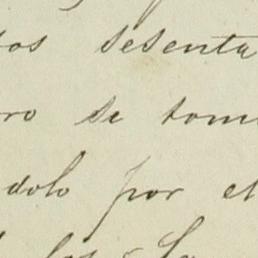 tos sesenta
ro se tom
dolo por el
los